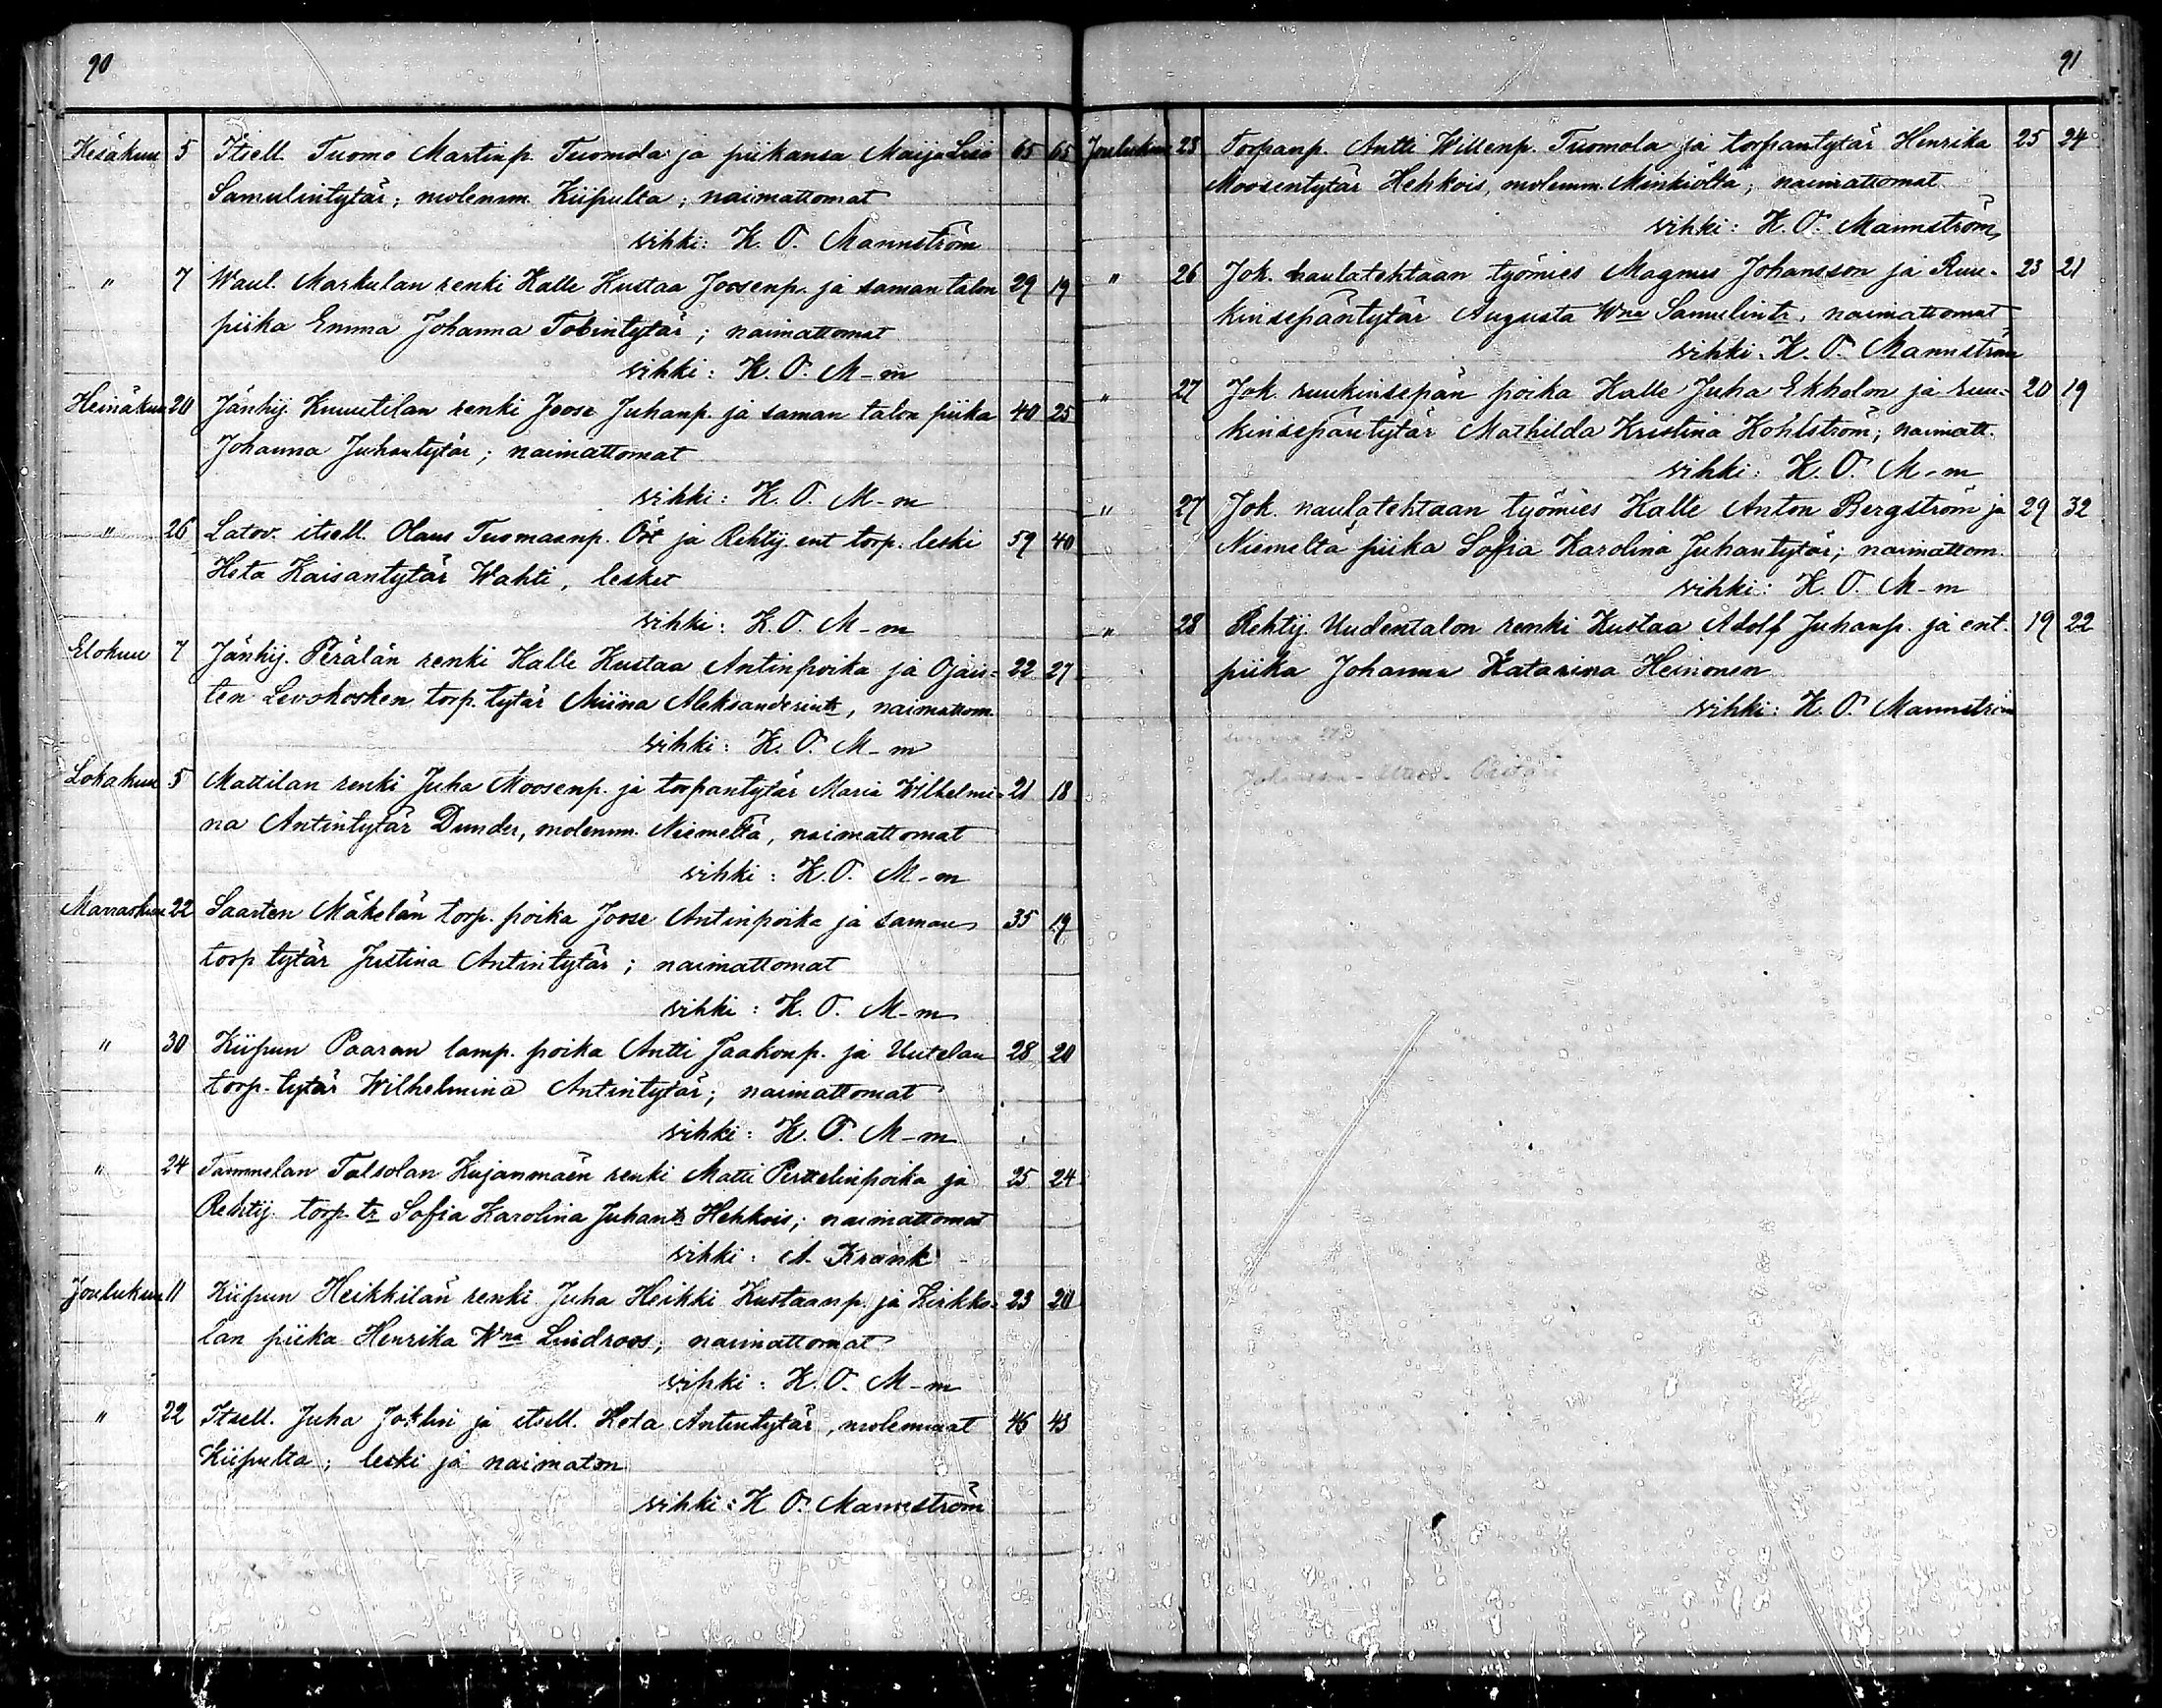 90
Kesäkuu 5 Itsell. Tuomo Martinp. Tuomola ja piikansa Maija Lisa 65 65
Samulintytär; molemm. Kiipulta; naimattomat
vihki: K. O. Mannström
" 7 Waul. Markulan renki Kalle Kustaa Joosenp. ja saman talon 29 19
piika Emma Johanna Tobintytär; naimattomat
vihki: K. O. M-m
Heinäkuu 20 Jänhij. Knuutilan renki Joose Juhanp. ja saman talon piika 40 25
Johanna Juhantytär; naimattomat
vihki: K. O. M-m
" 26 Latov. itsell. Olaus Tuomaanp. Öst ja Rehtij. ent torp. leski 59 40
Heta Kaisantytär Wahti, lesket
vihki: K. O. M-m
Elokuu 7 Jänhij. Perälän renki Kalle Kustaa Antinpoika ja Ojäis- 22 27
ten Levokosken torp. tytär Miina Aleksanderintr, naimattom.
vihki: K. O. M-m
Lokakuu 5 Mattilan renki Juha Moosenp. ja torpantytär Maria Wilhelmi- 21 18
na Antintytär Dunder, molemm. Niemeltä, naimattomat
vihki: K. O. M-m
Marraskuu 22 Saarten Mäkelän torp. poika Joose Antinpoika ja saman 35 19
torp tytär Justina Antintytär; naimattomat
vihki: K. O. M-m
" 30 Kiipun Paaran lamp. poika Antti Jaakonp. ja Uutelan 28 20
torp. tytär Wilhelmina Antintytär; naimattomat
vihki: K. O. M-m
" 24 Tammelan Talsolan Kujanmäen renki Matti Perttelinpoika ja 25 24
Rehtij. torp. tr Sofia Karolina Juhantr Hehkois; naimattomat
vihki: A. Krank
Joulukuu 11 Kiipun Heikkilän renki Juha Heikki Kustaanp. ja Kirkko- 23 20
lan piika Henrika Wna Lindroos; naimattomat
vihki: K. O. M-m
" 22 Itsell. Juha Joklin ja itsell. Heta Antintytär, molemmat 46 43
Kiipulta; leski ja naimaton
vihki: K. O. Mannström
91
Joulukuu 23 Torpanp. Antti Willenp. Tuomola ja torpantytär Henrika 25 24
Moosentytär Hehkois, molemm. Minkiöltä; naimattomat
vihki: K. O. Mannström
" 26 Jok. naulatehtaan työmies Magnus Johansson ja Ruu- 23 21
kinsepäntytär Augusta Wna Samulintr, naimattomat
vihki. K. O. Mannström
" 27 Jok. ruukinsepän poika Kalle Juha Ekholm ja ruu- 20 19
kinsepäntytär Mathilda Kristina Köhlström; naimatt.
vihki: K. O. M-m
" 27 Jok. naulatehtaan työmies Kalle Anton Bergström ja 29 32
Niemeltä piika Sofia Karolina Juhantytär; naimattom.
vihki: K. O. M-m
" 28 Rehtij. Uudentalon renki Kustaa Adolf Juhanp. ja ent. 19 22
piika Johanna Katarina Heinonen
vihki: K. O. Mannström
Johansson